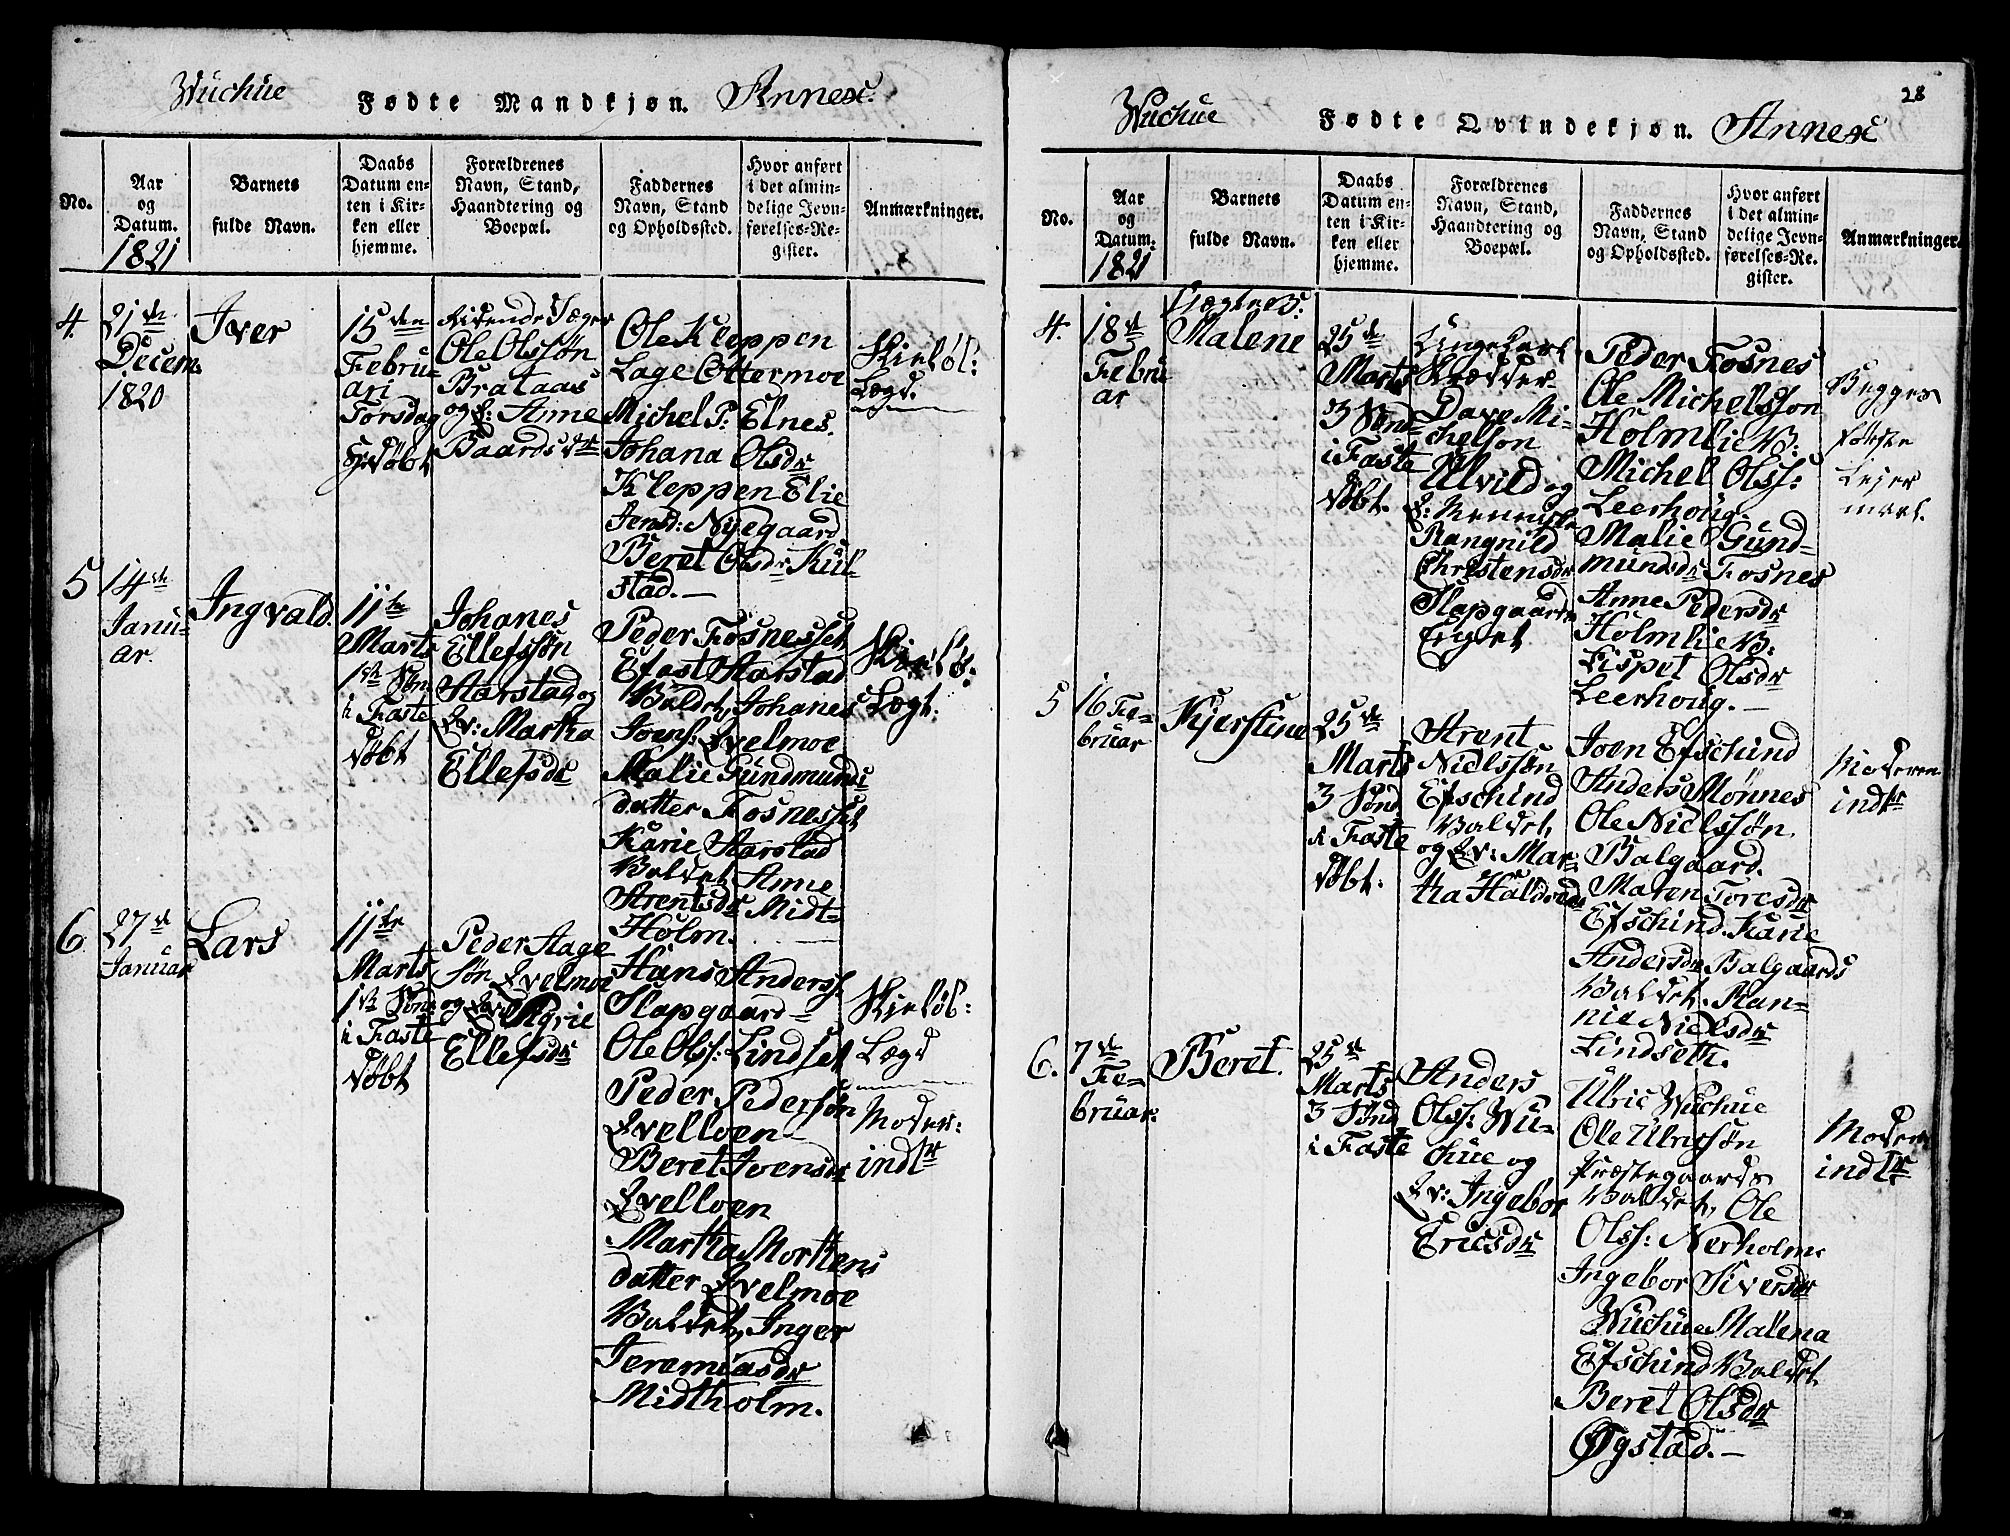 Wuchue Fødte Mandkjøn. Annex.
No.
Aar
og
Datum.
1821
Barnets
fulde Navn.
Daabs
Datum en-
ten i Kir-
ken eller
hjemme.
Forældrenes
Navn, Stand,
Haandtering og
Boepæl.
Faddernes
Navn, Stand
og Opholdssted.
Hvor anført
i det almin-
delige Jevn-
førelses-Re-
gister.
Anmærkninger.
4.
21de
Decem.
1820
Iver
15den
Febru-
ari
Torsdag
Ridende Jæger
Ole Olssøn
Brataas
og H: Anne
Baardsdr
Ole Kleppen
Lage Ottermoe
Michel P: Elnes.
Johana Olsdr
Kleppen Elie
Jensd: Nyegaard
Beret Olsdr Kul-
stad.—
Skieløb:
Lægd.
5
14de
Janu-
ar.
Ingvald.
11te
Marts
1ste Søn
i Faste
døbt
Johanes
Ellefssøn
Aarstad og
Hv: Martha
Ellefsdr
Peder Fosnesset
Efast Aarstad
Johanes
Joens: Qvelmoe
Malie Gundmunds
datter Fosnesset
Karie Aarstad
Anne
Arentsdr Midt-
Holm.
Skieløb:
Lægd:
6.
27de
Januar
Lars
11te
Marts
1ste Søn:
i Faste
døbt
Peder Aage
søn Qvelmoe
og Hv: Marie
Ellefsdr
Hans Anderss:
Slapgaard
Ole Olss: Lindset
Peder Pedersøn
Qvelloen
Beret Joensdr
Qvelloen
Martha Morthens
datter Qvelmoe
Inger
Jeremiasdr
Midtholm.
Skieløb:
Lægd
Moder:
indl:
28
Wuchue Fødte Qvindekjøn. Annex
No.
Aar
og
Datum:
1821
Barnets
fulde Navn.
Daabs
Datum en-
ten i Kir-
ken eller
hjemme.
Forældrenes
Navn, Stand,
Haandtering og
Boepæl.
Faddernes
Navn, Stand
og Opholdssted.
Hvor anført
i det almin-
delige Jevn-
førelses-Re-
gister.
Anmærkninger.
4.
18de
Febru
ar
Uægte B:
Malene
25de
Marts
3 Sønd
i Faste
døbt.
Ungekarl
Skrædder
Dave Mi-
chelson
Ulvild og
Rangnild
Christensdr
Slapgaards
Enget
Peder Fosnes
Ole Michelsson
Holmlie B:
Michel Olss:
Leerhoug.
Malie Gund-
mundsdr Fosnes
Anne Pedersdr
Holmlie B:
Lispet Olsdr
Leerhoug.—
Begges
første
Lejer
maal.
5
16 Fe-
bruar
Kjerstine
25de
Marts
3 Sønd
i Faste
døbt.
Arent
Nielssøn
Efschind
og Hv: Mar-
tha Haldosds
Joen Efschind
Anders Mønnes
Ole Nielssøn
Balgaard.
Maren Toresdr
Efschind. Karie
Andersdr Balgaards
Ran-
nie Nielsdr
Lindseth.
Moderen
indlr
6.
7de
Fe-
bruar.
Beret.
25de
Marts
3 Sønd
i Faste
Anders
Olss: Wu-
chue og
Hv: Ingebor
Ericsdr
Ulric Wuchue
Ole Ulricsøn
Præstegaards
Ole
Olss: Nerholm
Ingebor Siversdr
Wuchue Malena
Efschind
Beret Olsdr
Øgstad.—
Moderen
indlr